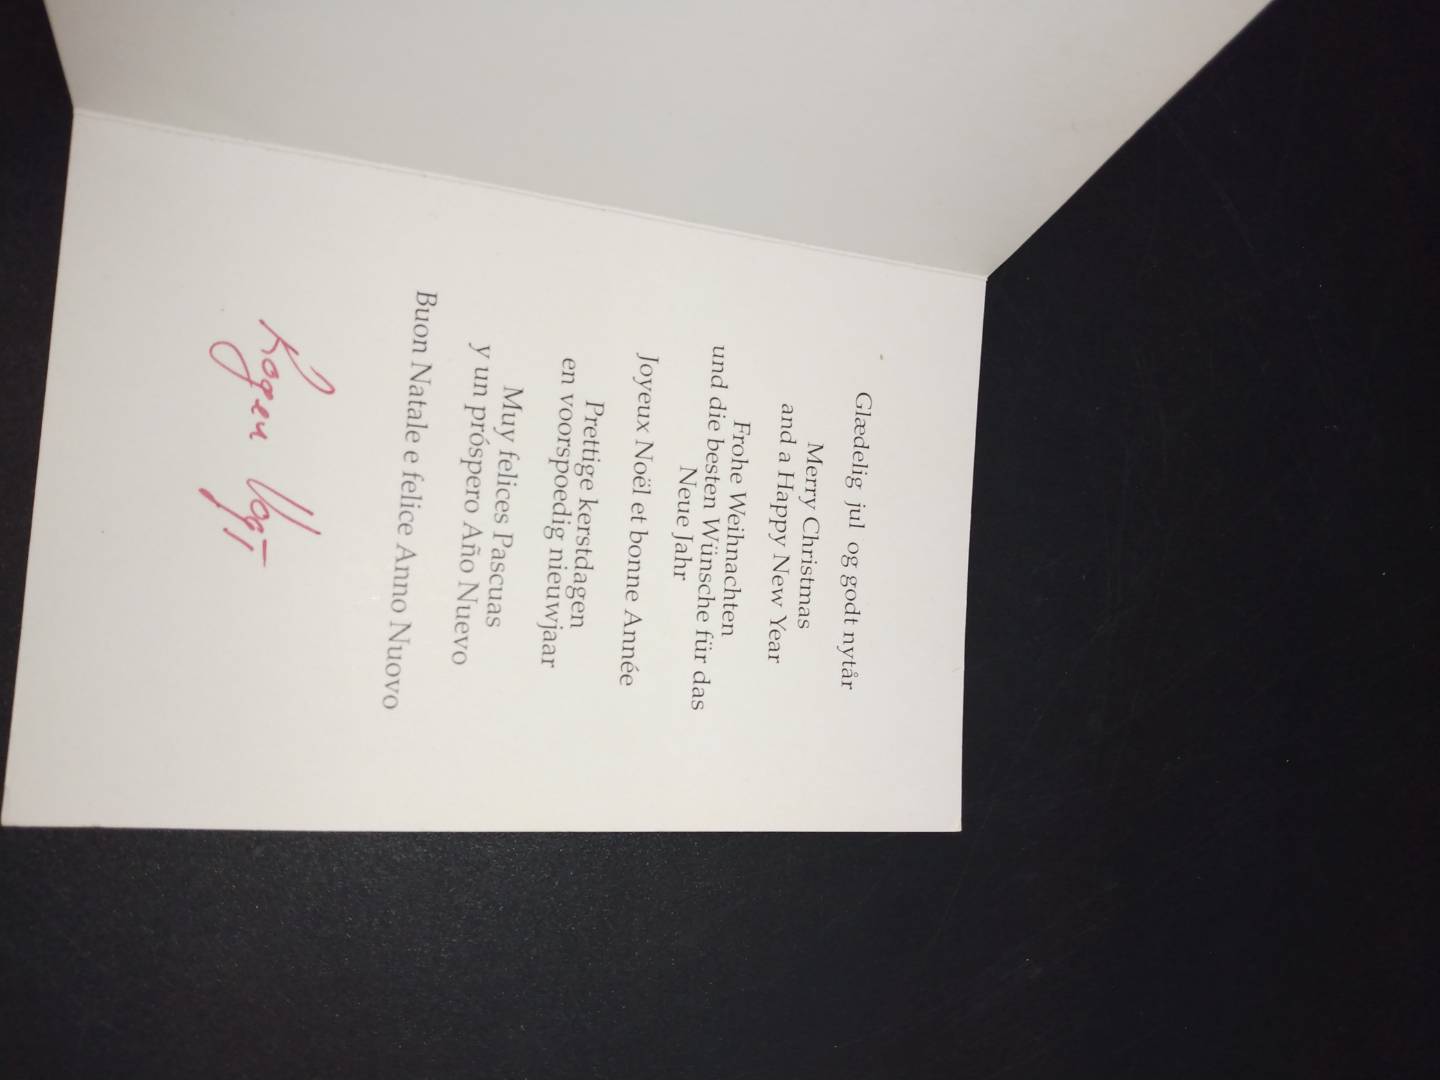 Glædelig jul og godt nytår
Merry Christmas
and a Happy New Year
Frohe Weihnachten
und die besten Wünsche für das
Neue Jahr
Joyeux Noël et bonne Année
Prettige kerstdagen
en voorspoedig nieuwjaar
Muy felices Pascuas
y un próspero Año Nuevo
Buon Natale e felice Anno Nuovo
Vogt